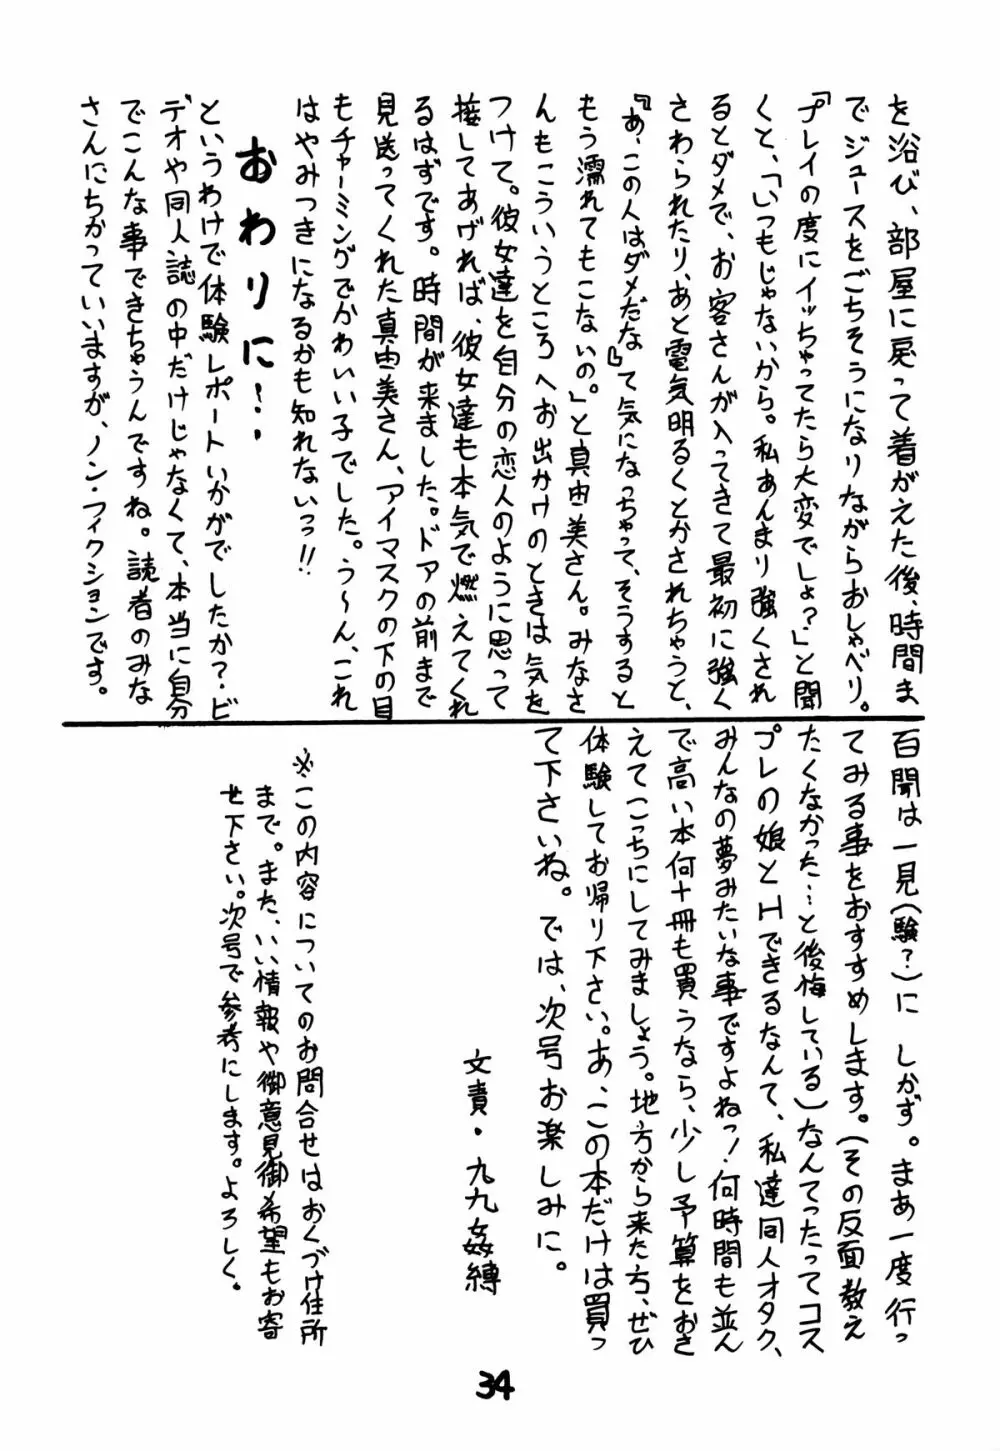 を浴び、部屋に戻って着がえた後、時間ま
でジュースをごちそうになりながらおしゃべり。
「プレイの度にイッちゃってたら大変でしょ?」と聞
くと、「いつもじゃないから。私あんまり強くされ
るとダメで、お客さんが入ってきて最初に強く
さわられたり、あと電気明るくとかされちゃうと、
『あ、この人はダメだな』て気になっちゃって、そうすると
もう濡れてもこないの。」と真由美さん。みなさ
んもこういうところへお出かけのときは気を
つけて。彼女達を自分の恋人のように思って
接してあげれば、彼女達も本気で燃えてくれ
るはずです。時間が来ました。ドアの前まで
見送ってくれた真由美さん、アイマスクの下の目
もチャーミングでかわいい子でした。う～ん、これ
はやみつきになるかも知れないっ!!
おわりに!..
というわけで体験レポートいかがでしたか?.ビ
デオや同人誌の中だけじゃなくて、本当に自分
でこんな事できちゃうんですね。読者のみな
さんにちかっていいますが、ノン・フィクションです。
百聞は一見(験?)に しかず。まあ一度行っ
てみる事をおすすめします。(その反面教え
たくなかった…と後悔している)なんてったってコス
プレの娘とHできるなんて、私達同人オタク、
みんなの夢みたいな事ですよねっ!何時間も並ん
で高い本何十冊も買うなら、少し予算をおさ
えてこっちにしてみましょう。地方から来た方、ぜひ
体験してお帰り下さい。あ、この本だけは買っ
て下さいね。では、次号お楽しみに。
文責・九九姦縛
※この内容についてのお問合せはおくづけ住所
まで。また、いい情報や御意見御希望もお寄
せ下さい。次号で参考にします。よろしく。
34